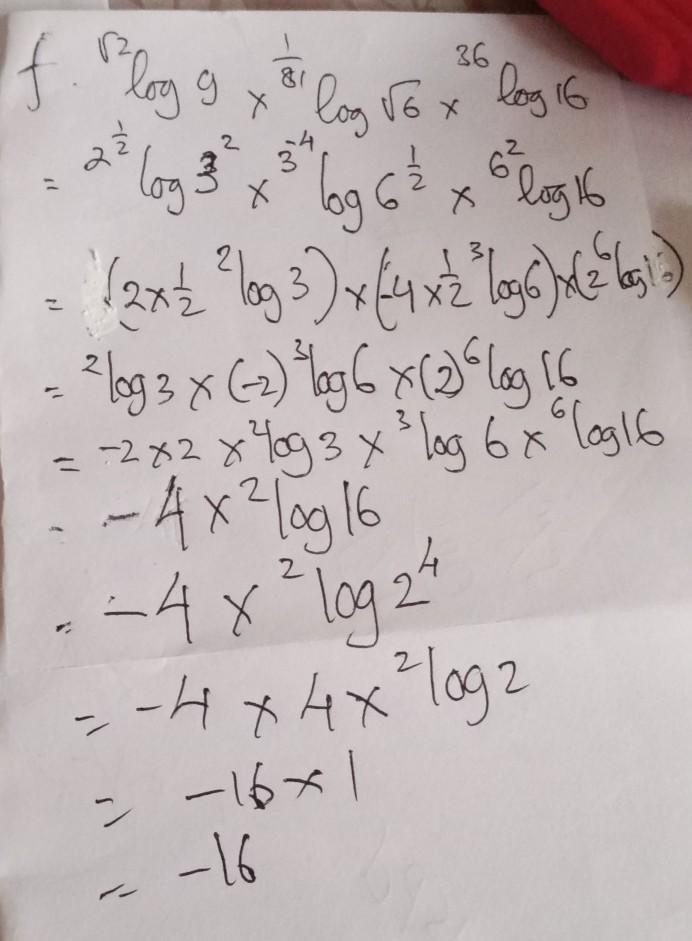 f. √2log 9 × 1/81 log √6 × 36 log 16
= 2^(1/2) log 3^2 × 3^-4 log 6^(1/2) × 6^2 log 16
= (2×1/2 ²log 3) × (-4×1/2 ³log 6) × (2 ⁶log 16)
= ²log 3 × (-2) ³log 6 × (2) ⁶log 16
= -2 × 2 × ²log 3 × ³log 6 × ⁶log 16
= -4 × ²log 16
= -4 × ²log 2^4
= -4 × 4 × ²log 2
= -16 × 1
= -16